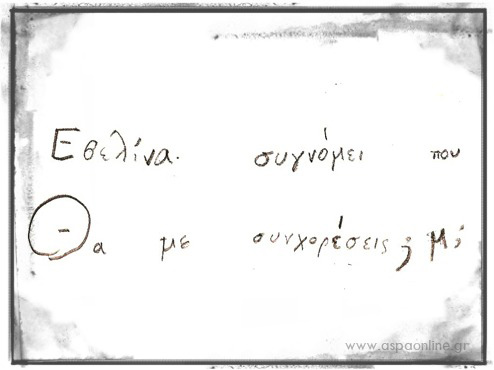 Εβελίνα. συγνόμει που
Θα με συνχορέσεις; μ;
www.aspaonline.gr